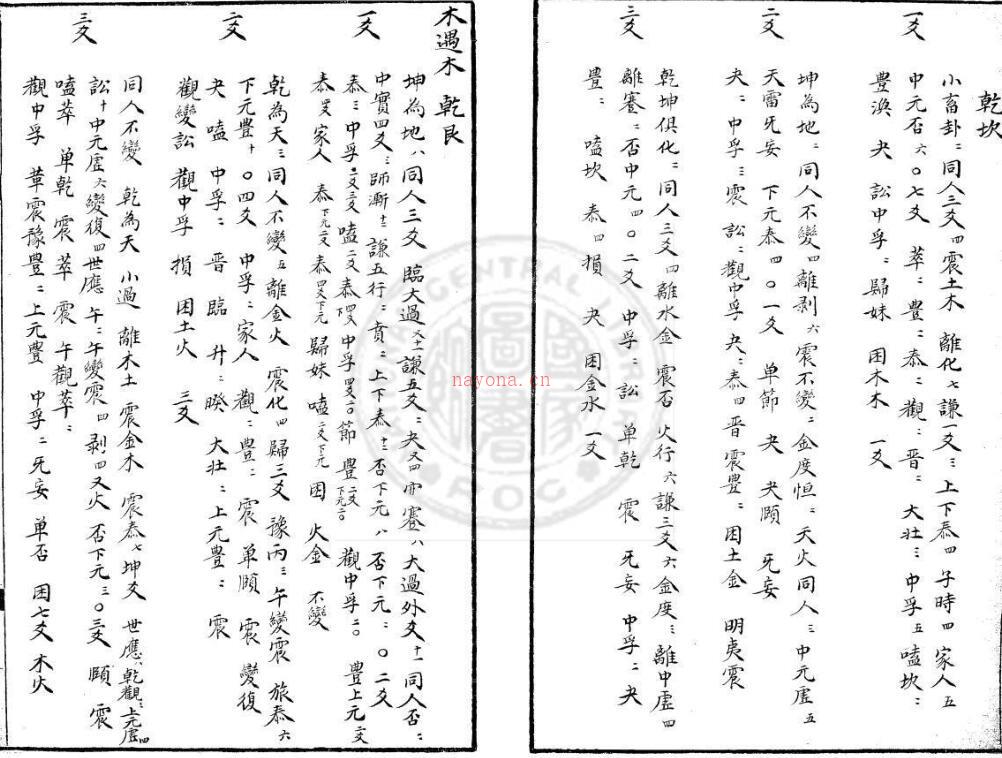 乾坎
一爻
小畜卦二同人三爻四震土木 離化七謙一爻三上下泰四 子時四 家人五
中元否六〇七爻 萃二豊二泰二觀二晋二 大壯三中孚五嗑坎二
豊渙 夬 訟中孚二歸妹 困木木 一爻
二爻
坤為地二同人不變四離剥六震不變二金度恒二天火同人三中元虚五
天雷旡妄 下元泰四〇一爻 单節 夬 夬頤 旡妄
夬二中孚三震 訟二觀中孚 夬二泰四晋震豊二困土金 明夷震
三爻
乾坤俱化二同人三爻四離水金 震否 火行六謙三爻六金度三離中虚四
離蹇二否中元四〇二爻 中孚二訟 单乾 震 旡妄 中孚二夬
豊二 嗑坎 泰四損 夬 困金水 一爻
木遇木 乾艮
一爻
坤為地八同人三爻 臨大過 謙五爻二夬 蹇八大過外爻十一同人否二
中實四爻三師漸十二謙五行二賁二上下泰十二否下元八否下元二〇二爻
泰三中孚二爻三爻嗑二爻泰 中孚 〇節 豊 觀中孚二〇 豊上元二爻
泰 家人 泰下元二爻 泰 下元 歸妹 嗑二爻下元 困 火金 不變
二爻
乾為天三同人不變五離金火 震化四歸三爻 豫丙三午變震 旅泰六
下元豊十〇四爻 中孚二家人 觀二豊二震 单頤 震 變復
夬 嗑 中孚二 晋臨 升二睽 大壯二上元豊二 震
觀變訟 觀中孚 損 困土火 三爻
三爻
同人不變 乾為天 小過 離木土 震金木 震泰七坤爻 世應八乾觀二上元虚四
訟十中元虚六變復四世應 午二午變震四剥四又火 否下元三〇三爻 頤 震
嗑萃 单乾 震 萃 震 午觀萃二
觀中孚 革震豫豊二上元豊 中孚二旡妄 单否 困七爻 木火
nayona.cn
CENTRAL
ROC